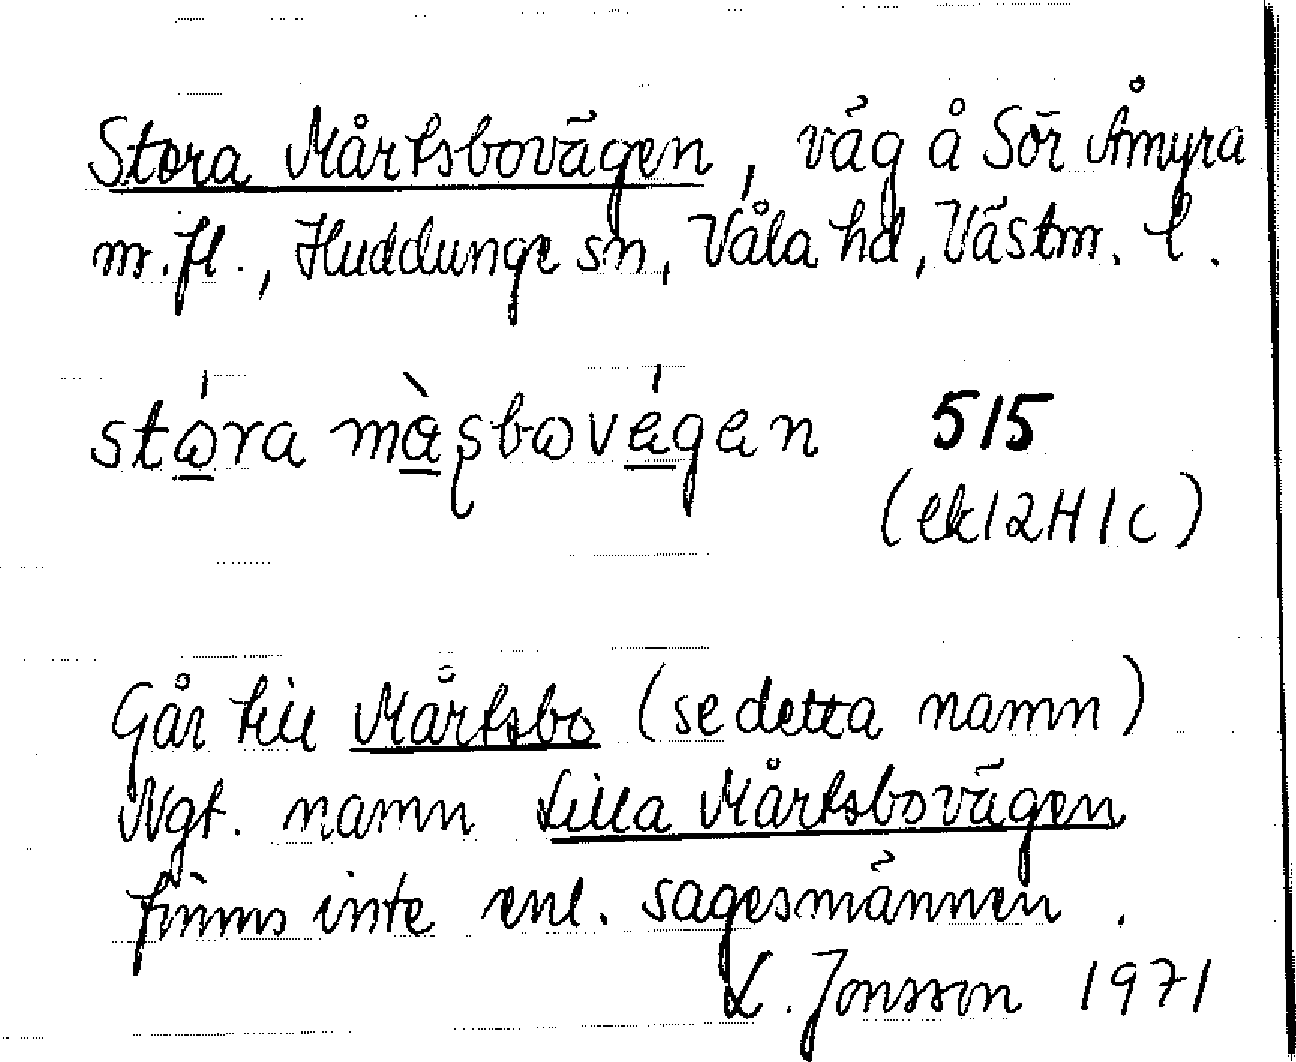 Stora Mårtsbovägen, väg å Sör Åmyra
m.fl., Huddunge sn, Våla hd, Västm. l.
stóra màsbovégen 515
(ek 12H1c)
Går till Mårtsbo (se detta namn)
Ngt. namn Lilla Mårtsbovägen
finns inte enl. sagesmännen.
L. Jonsson 1971